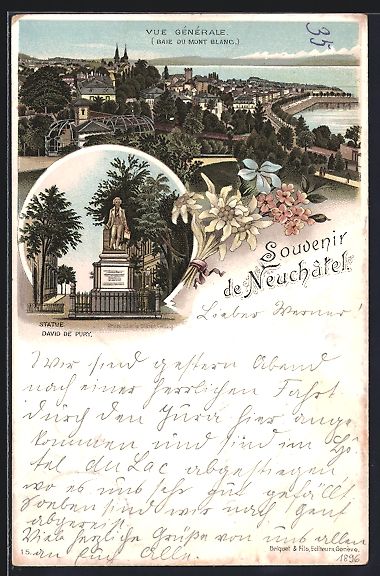 VUE GÉNÉRALE.
(BAIE DU MONT BLANC.)
35
Souvenir
de Neuchâtel.
STATUE
DAVID DE PURY.
Lieber Werner!
Wir sind gestern Abend
nach einer herrlichen Fahrt
durch den Jura hier ange
kommen und sind im Hô
tel du Lac abgestiegen
wo es uns sehr gut gefällt
soeben sind wir nach Genf
abgereist.
Viele herzliche Grüße von uns allen
an Euch Alle.
Briquet & Fils, Editeurs, Genève.
1896